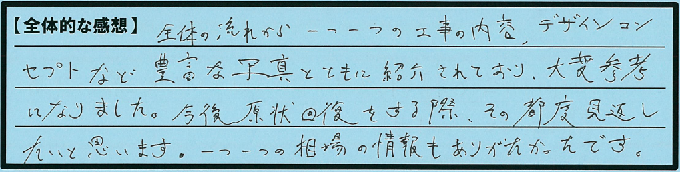 【全体的な感想】 全体の流れから一つ一つの工事の内容、デザインコン
セプトなど豊富な写真とともに紹介されており、大変参考
になりました。今後原状回復をする際、その都度見返し
たいと思います。一つ一つの相場の情報もありがたかったです。